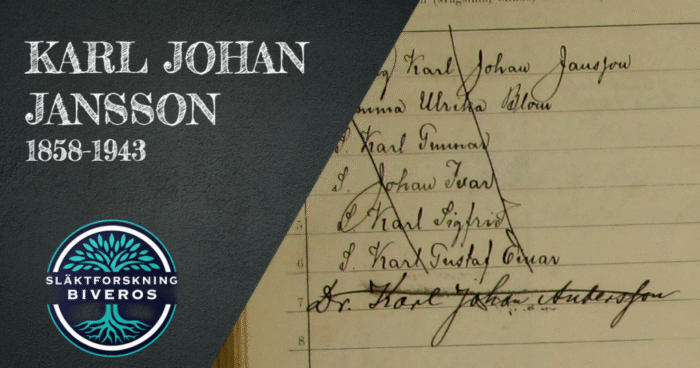 KARL JOHAN
JANSSON
1858-1943
SLÄKTFORSKNING
BIVEROS
Karl Johan Jansson
Ulrika Blom
S. Karl Gunnar
S. Johan Ivar
5 S. Karl Sigfrid
6 S. Karl Gustaf Einar
7 Dr. Karl Johan Andersson
8